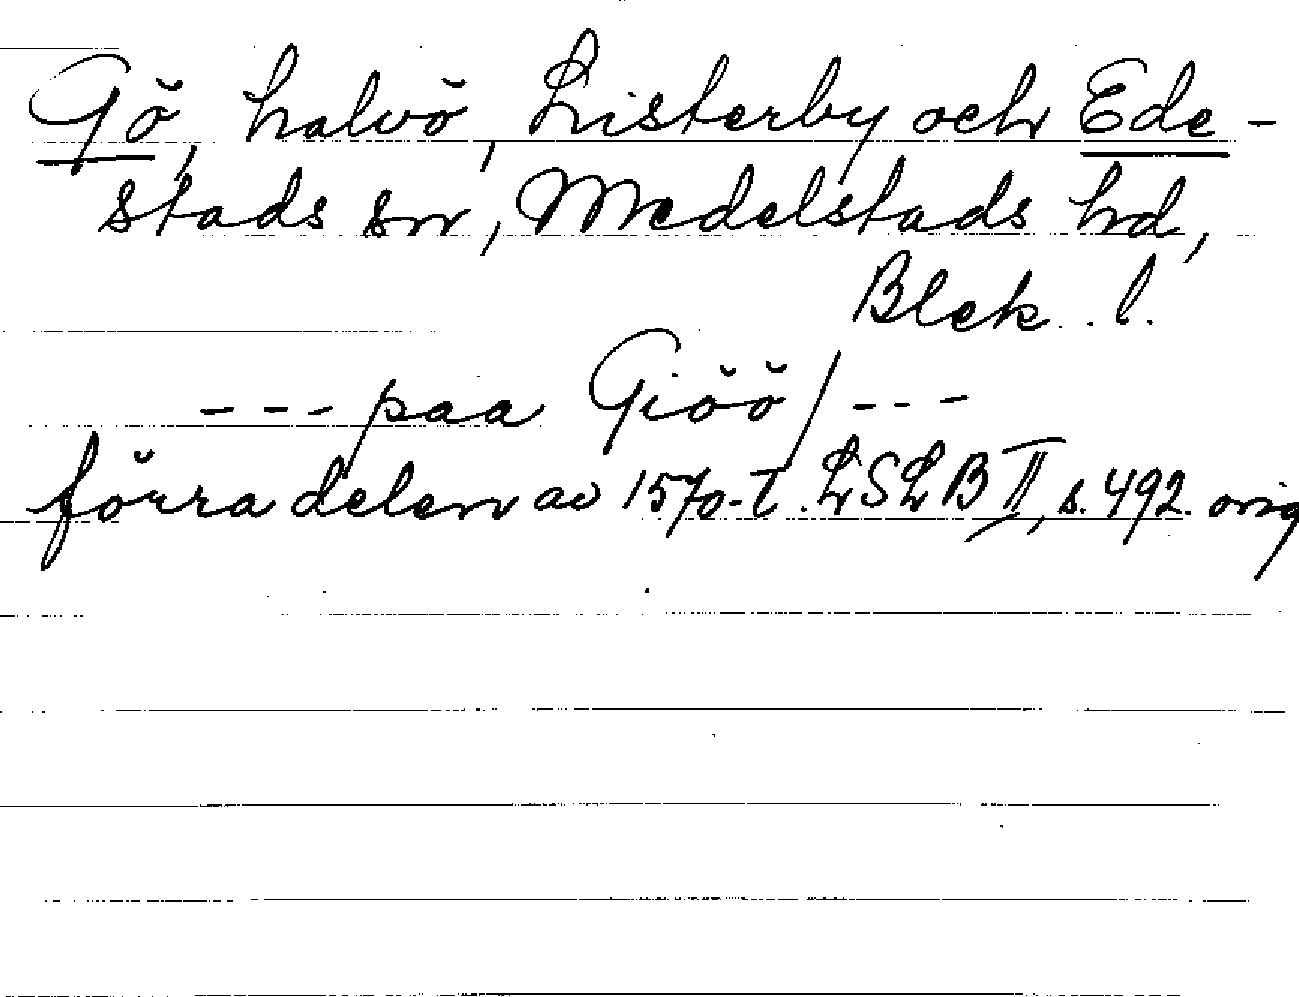 Gö, halvö, Listerby och Ede-
stads sn, Medelstads hd,
Blek. l.
--- paa Giöö/ ---
förra delen av 1570-t. LSLB II, s. 492. orig